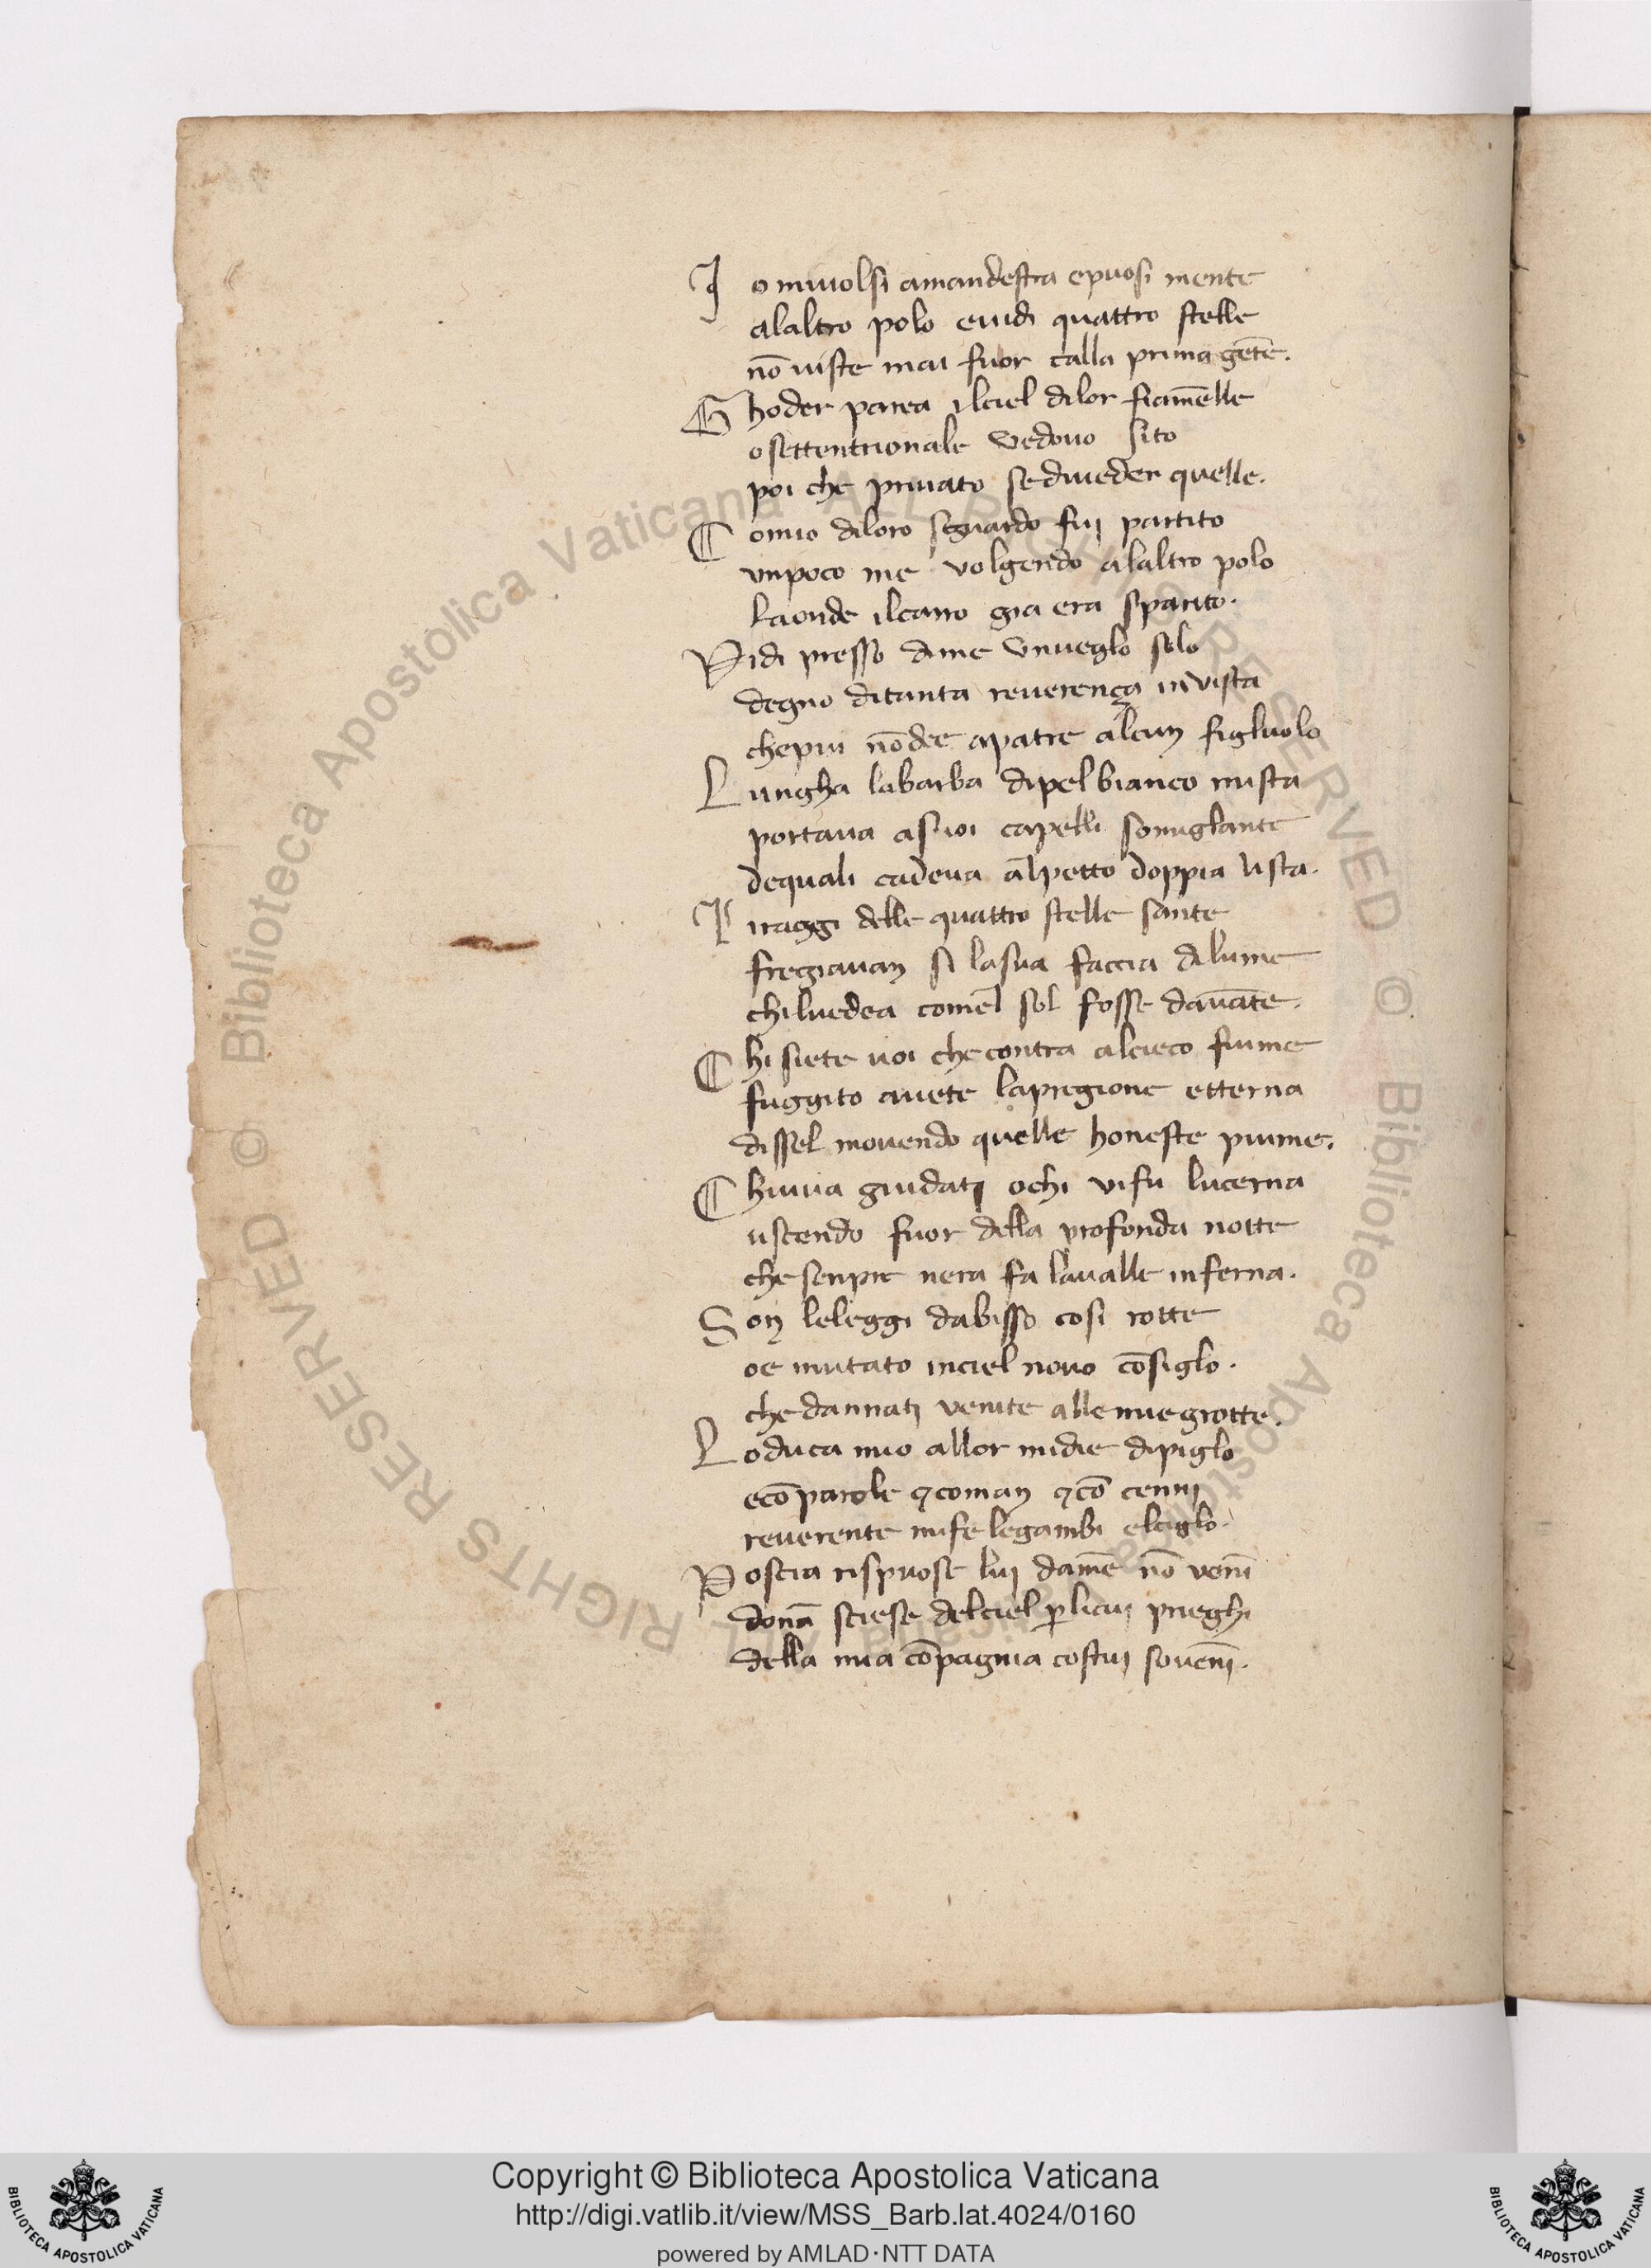 I o mivolsi amandestra epuosi mente
alaltro polo evidi quattro stelle
nō viste mai fuor calla prima gētē.
G hoder parea ilciel dilor fiamēlle
o settentrionale vedovo sito
poi che privato sediveder quelle.
C omio diloro sguardo fuj partito
unpoco me volgendo alaltro polo
laonde ilcarro gia era sparito.
V idi presso dime unveglo solo
degno ditanta reverença invista
chepiu nōdee apatre alcun figluolo
L ungha labarba dipel bianco mista
portava asuoi capelli somiglante
dequali cadeva alpetto doppia lista.
I iraggi delle quattro stelle sante
fregiavan si lasua faccia dilume
chiluedea comel sol fosse davātē.
C hi siete voi che contra alcieco fiume
fuggito avete lapregione etterna
dissel movendo quelle honeste piume.
C hivva guidatj ochi vifu lucerna
uscendo fuor della profonda notte
che senpre nera fa lavalle inferna.
S on leleggi dabisso così rotte
oe mutato inciel novo cōsiglo.
che dannatj venite alle mie grotte.
L oduca mio allor midie dipiglo
ecō parole ⁊ coman ⁊ cō cennj
reverente mife legambi elciglo.
P oscia rispuose luj damē nō venī
donā sciese delciel ꝑlicuj prieghi
della mia cōpagnia costuj sovenī.
© Biblioteca Apostolica Vaticana ALL RIGHTS RESERVED © Biblioteca Apostolica Vaticana ALL RIGHTS RESERVED
Copyright © Biblioteca Apostolica Vaticana
http://digi.vatlib.it/view/MSS_Barb.lat.4024/0160
powered by AMLAD·NTT DATA
BIBLIOTECA APOSTOLICA VATICANA
BIBLIOTECA APOSTOLICA VATICANA